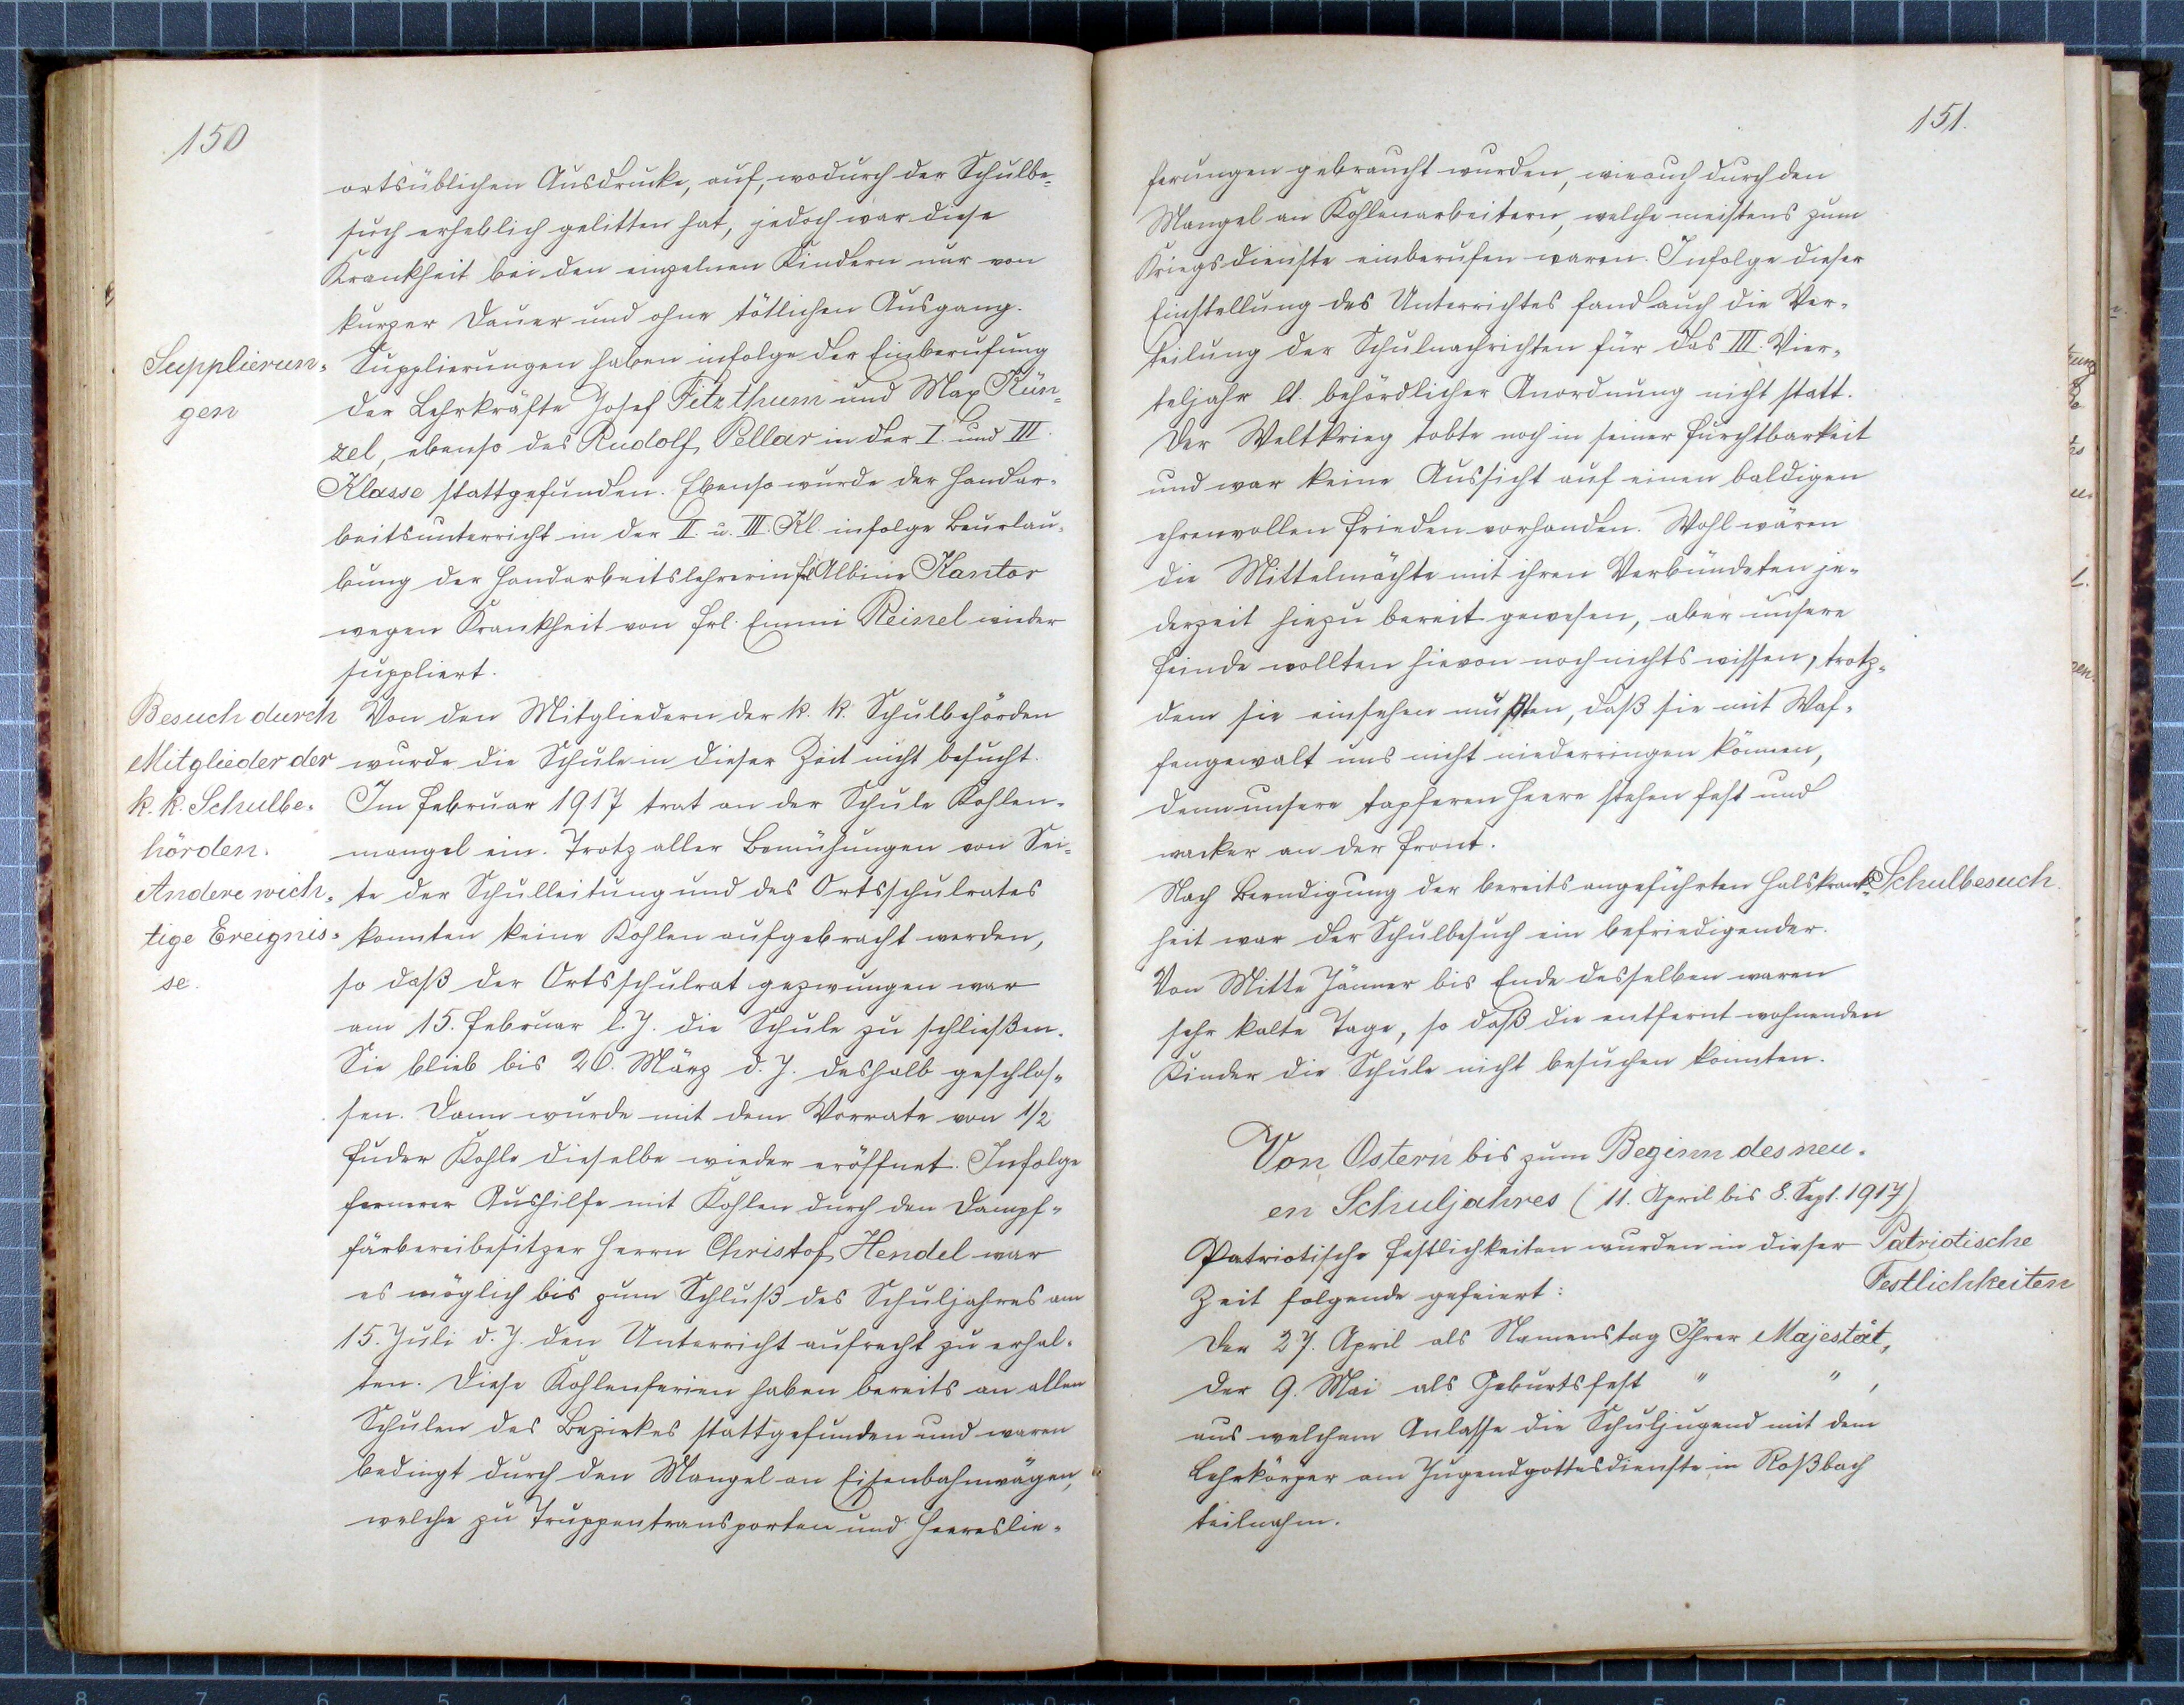 150
ortsüblichen Ausdrucke, auf, wodurch der Schulbe-
such erheblich gelitten hat, jedoch war diese
Krankheit bei den einzelnen Kindern nur von
kurzer Dauer und ohne tötlichen Ausgang.
Supplierun-
gen
Supplierungen haben infolge der Einberufung
der Lehrkräfte Josef Fitzthum und Max Kün-
zel, ebenso des Rudolf Pellar in der I. und III.
Klasse stattgefunden. Ebenso wurde der Handar-
beitsunterricht in der II. u. III. Kl. infolge Beurlau-
bung der Handarbeitslehrerin Frl. Albine Kantor
wegen Krankheit von Frl. Emmi Reinel wieder
suppliert.
Besuch durch
Mitglieder der
k. k. Schulbe-
hörden.
Von den Mitgliedern der k. k. Schulbehörden
wurde die Schule in dieser Zeit nicht besucht.
Andere wich-
tige Ereignis-
se.
Im Februar 1917 trat an der Schule Kohlen-
mangel ein. Trotz aller Bemühungen von Sei-
te der Schulleitung und des Ortsschulrates
konnten keine Kohlen aufgebracht werden,
so daß der Ortsschulrat gezwungen war
am 15. Februar l. J. die Schule zu schließen.
Sie blieb bis 26. März d. J. deshalb geschlos-
sen. Dann wurde mit dem Vorrate von 1/2
Fuder Kohle dieselbe wieder eröffnet. Infolge
fernerer Aushilfe mit Kohlen durch den Dampf-
färbereibesitzer Herrn Christof Hendel war
es möglich bis zum Schluß des Schuljahres am
15. Juli d. J. den Unterricht aufrecht zu erhal-
ten. Diese Kohlenferien haben bereits an allen
Schulen des Bezirkes stattgefunden und waren
bedingt durch den Mangel an Eisenbahnwägen,
welche zu Truppentransporten und Heereslie-
151.
ferungen gebraucht wurden, wie auch durch den
Mangel an Kohlenarbeitern, welche meistens zum
Kriegsdienste einberufen waren. Infolge dieser
Einstellung des Unterrichtes fand auch die Ver-
teilung der Schulnachrichten für das III. Vier-
teljahr lt. behördlicher Anordnung nicht statt.
Der Weltkrieg tobte noch in seiner Furchtbarkeit
und war keine Aussicht auf einen baldigen
ehrenvollen Frieden vorhanden. Wohl wären
die Mittelmächte mit ihren Verbündeten je-
derzeit hiezu bereit gewesen, aber unsere
Feinde wollten hievon noch nichts wissen, trotz-
dem sie einsehen mußten, daß sie mit Waf-
fengewalt uns nicht niederringen können,
denn unsere tapferen Heere stehen fest und
wacker an der Front.
Nach Beendigung der bereits angeführten Halskrank-
Schulbesuch.
heit war der Schulbesuch ein befriedigender.
Von Mitte Jänner bis Ende desselben waren
sehr kalte Tage, so daß die entfernt wohnenden
Kinder die Schule nicht besuchen konnten.
Von Ostern bis zum Beginn des neu-
en Schuljahres (11. April bis 8. Sept. 1917)
Patriotische Festlichkeiten wurden in dieser
Patriotische
Festlichkeiten
Zeit folgende gefeiert:
Der 27. April als Namenstag Ihrer Majestät,
der 9. Mai als Geburtsfest " ",
aus welchem Anlasse die Schuljugend mit dem
Lehrkörper am Jugendgottesdienste in Roßbach
teilnahm.